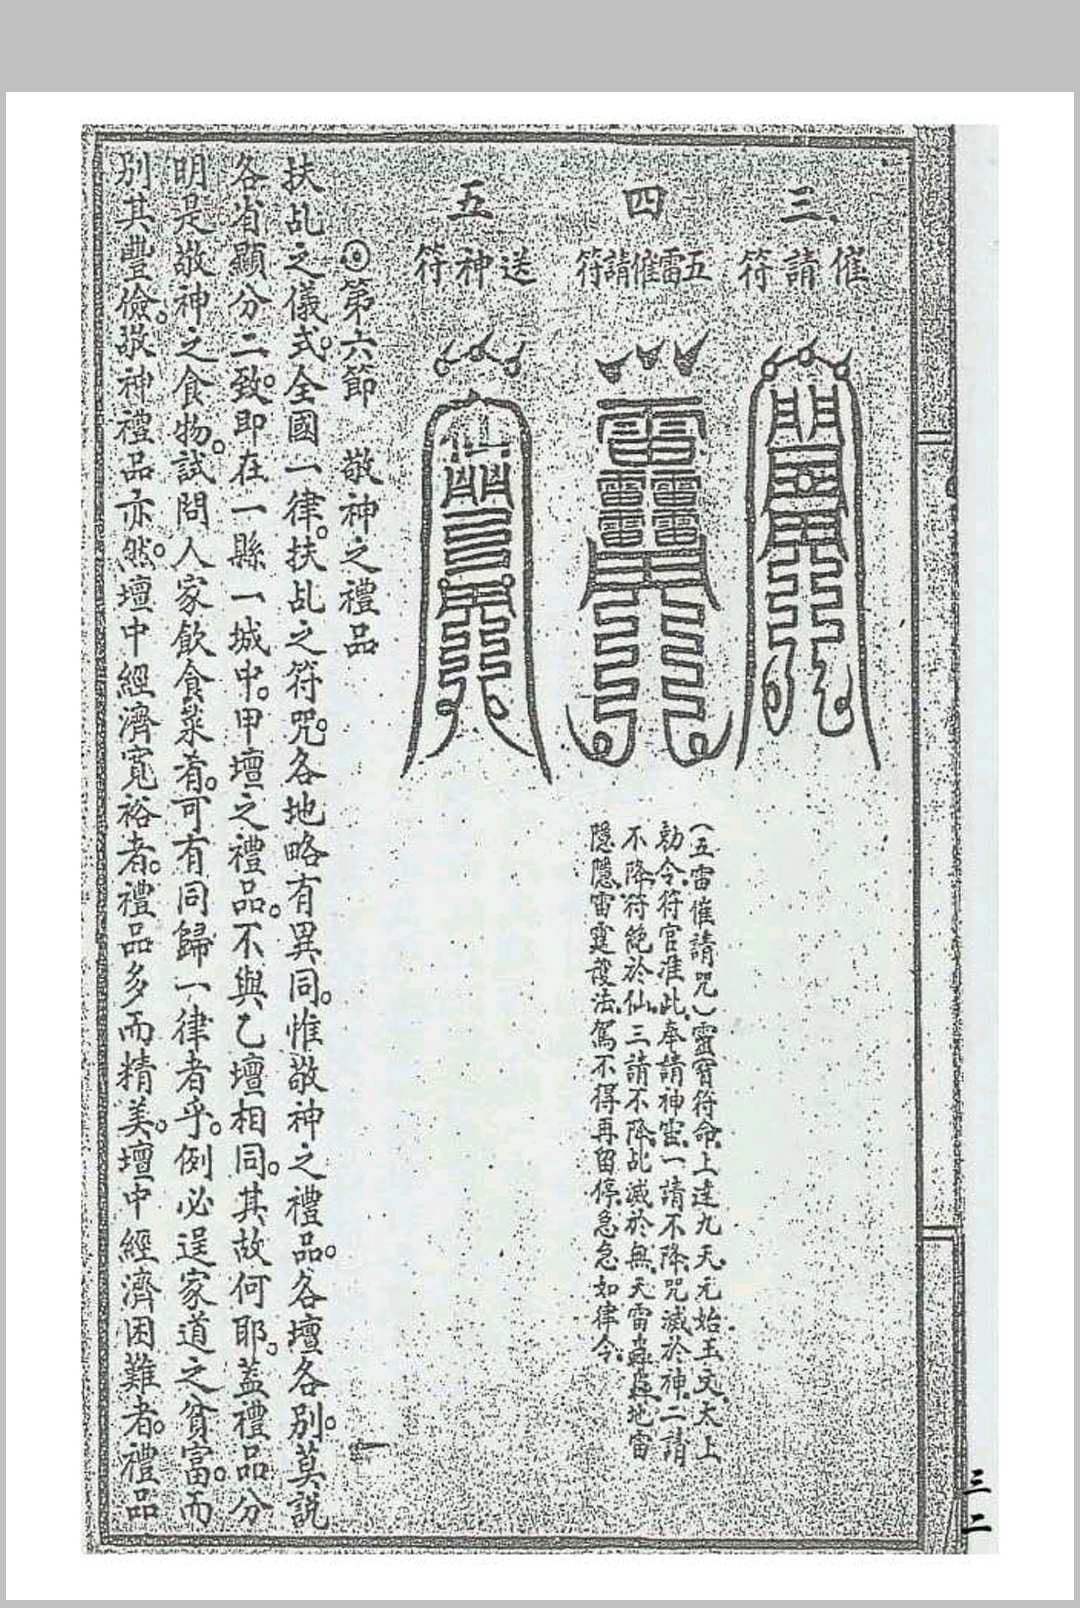 三
催請符
四
五雷催請符
(五雷催請咒)靈寶符命.上達九天.元始玉文.太上
勅令.符官准此.奉請神雷.一請不降.咒滅於神.二請
不降.符絕於仙.三請不降.乩滅於無.天雷轟轟.地雷
隱隱.雷霆護法.駕不得再留停.急急如律令.
五
送神符
◎第六節　敬神之禮品
扶乩之儀式。全國一律。扶乩之符咒。各地略有異同。惟敬神之禮品。各壇各別。莫說
各省顯分二致。即在一縣一城中。甲壇之禮品。不與乙壇相同。其故何耶。蓋禮品分
明是敬神之食物。試問人家飲食菜肴。可有同歸一律者乎。例必逞家道之貧富。而
別其豐儉。敬神禮品亦然。壇中經濟寬裕者。禮品多而精美。壇中經濟困難者。禮品
三二